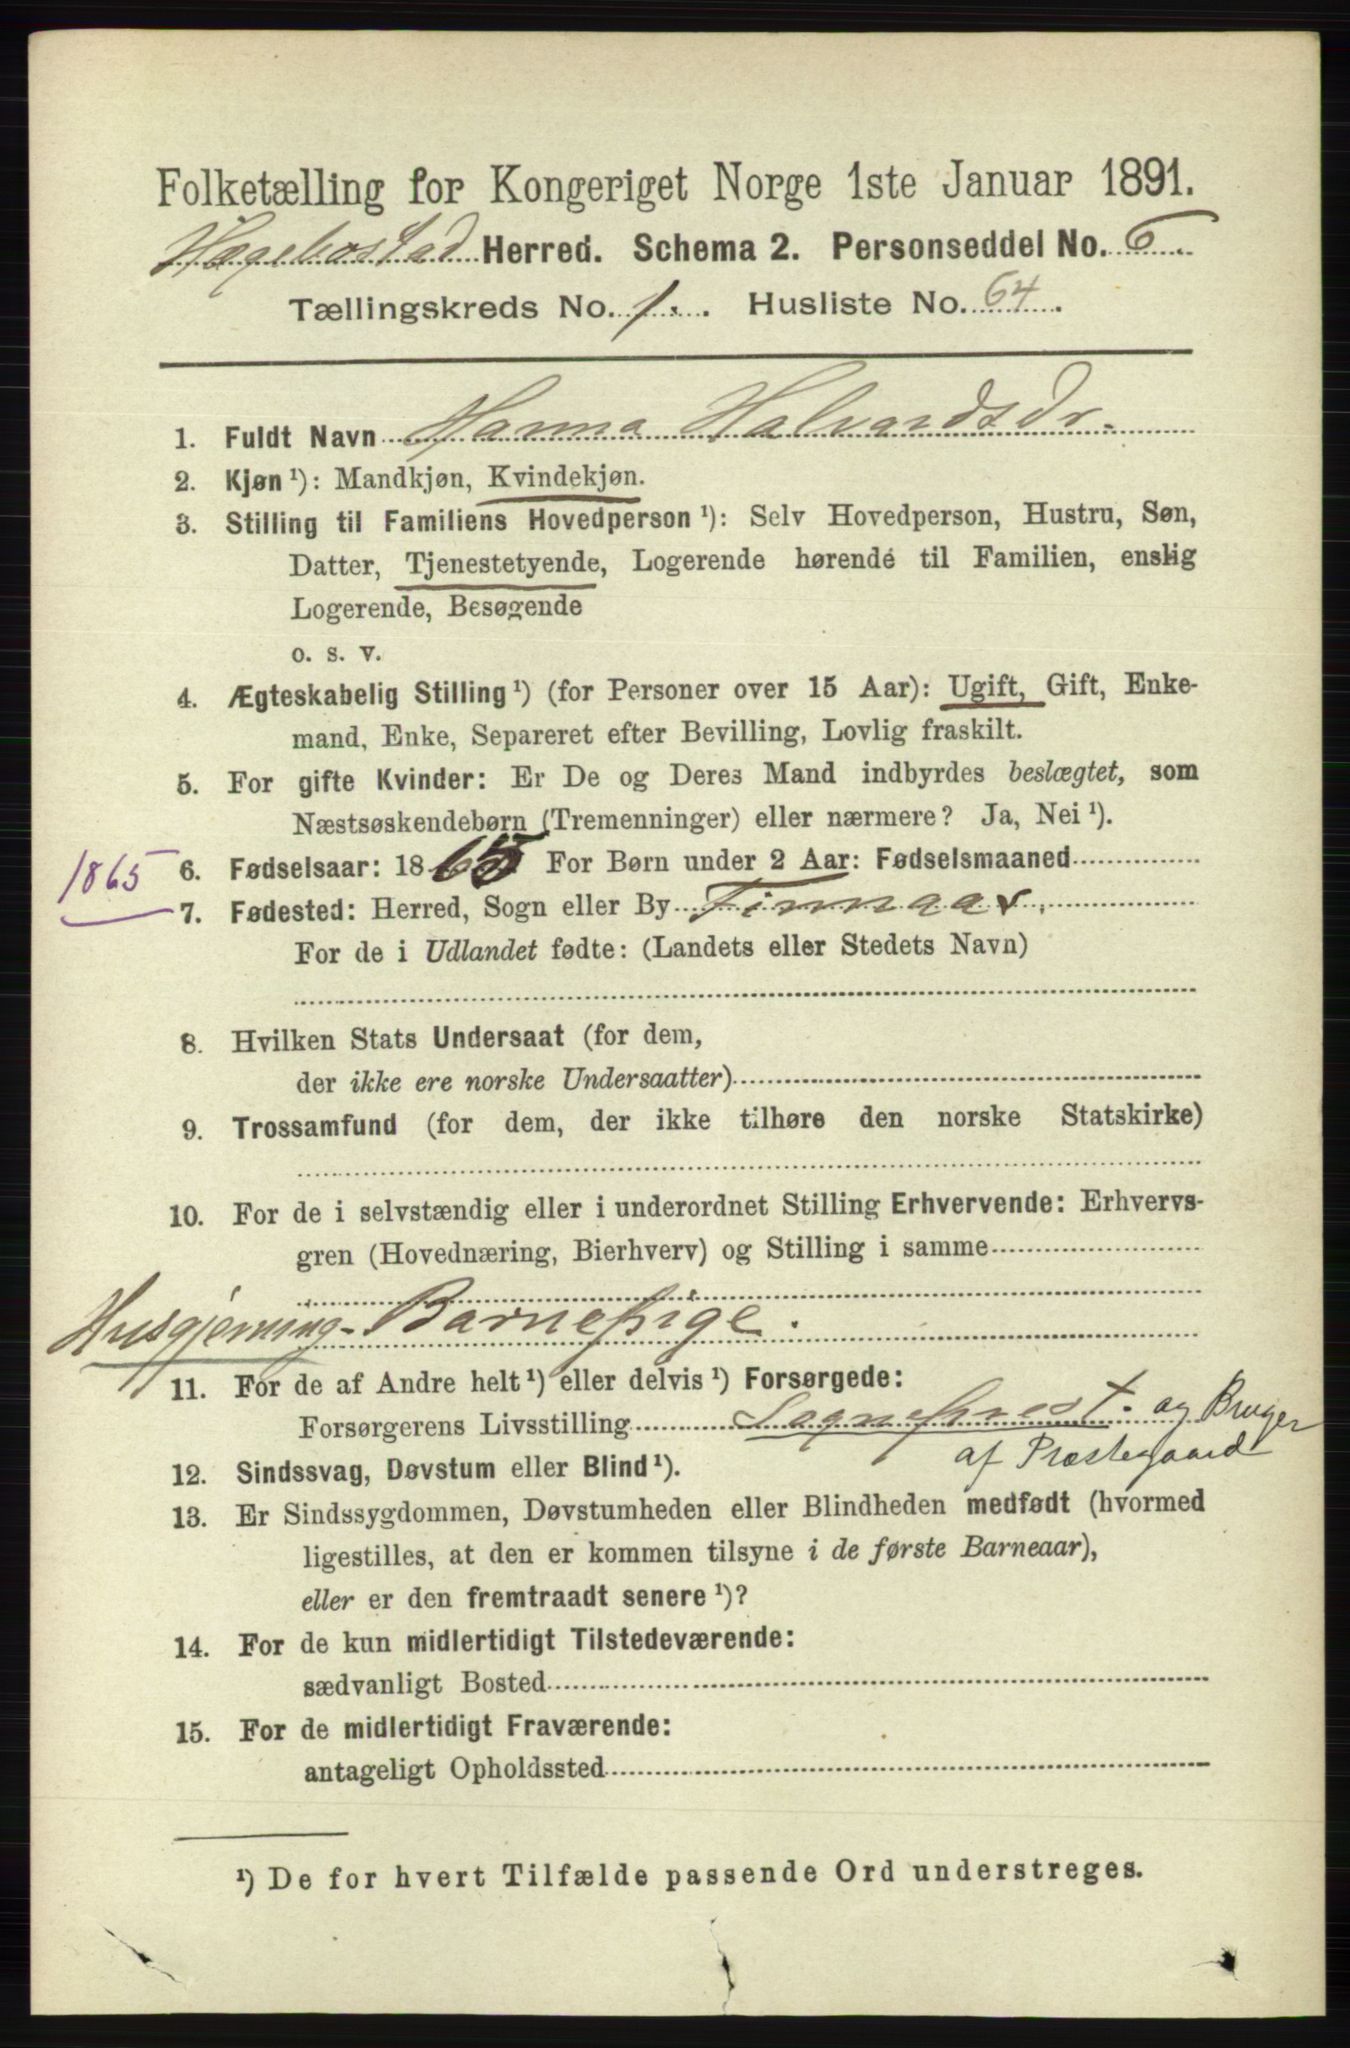 Folketælling for Kongeriget Norge 1ste Januar 1891.
Hægebostad Herred. Schema 2. Personseddel No. 6.
Tællingskreds No. 1. Husliste No. 64.
1. Fuldt Navn Hanna Halvardsdr.
2. Kjøn ¹): Mandkjøn, Kvindekjøn.
3. Stilling til Familiens Hovedperson ¹): Selv Hovedperson, Hustru, Søn,
Datter, Tjenestetyende, Logerende hørende til Familien, enslig
Logerende, Besøgende
o. s. v.
4. Ægteskabelig Stilling ¹) (for Personer over 15 Aar): Ugift, Gift, Enke-
mand, Enke, Separeret efter Bevilling, Lovlig fraskilt.
5. For gifte Kvinder: Er De og Deres Mand indbyrdes beslægtet, som
Næstsøskendebørn (Tremenninger) eller nærmere? Ja, Nei ¹).
1865 6. Fødselsaar: 1865 For Børn under 2 Aar: Fødselsmaaned
7. Fødested: Herred, Sogn eller By Finnaas.
For de i Udlandet fødte: (Landets eller Stedets Navn)
8. Hvilken Stats Undersaat (for dem,
der ikke ere norske Undersaatter)
9. Trossamfund (for dem, der ikke tilhøre den norske Statskirke)
10. For de i selvstændig eller i underordnet Stilling Erhvervende: Erhvervs-
gren (Hovednæring, Bierhverv) og Stilling i samme
Husgjerning - Barnepige.
11. For de af Andre helt ¹) eller delvis ¹) Forsørgede:
Forsørgerens Livsstilling Sogneprest. og Bruger
af Præstegaard
12. Sindssvag, Døvstum eller Blind ¹).
13. Er Sindssygdommen, Døvstumheden eller Blindheden medfødt (hvormed
ligestilles, at den er kommen tilsyne i de første Barneaar),
eller er den fremtraadt senere ¹)?
14. For de kun midlertidigt Tilstedeværende:
sædvanligt Bosted
15. For de midlertidigt Fraværende:
antageligt Opholdssted
¹) De for hvert Tilfælde passende Ord understreges.